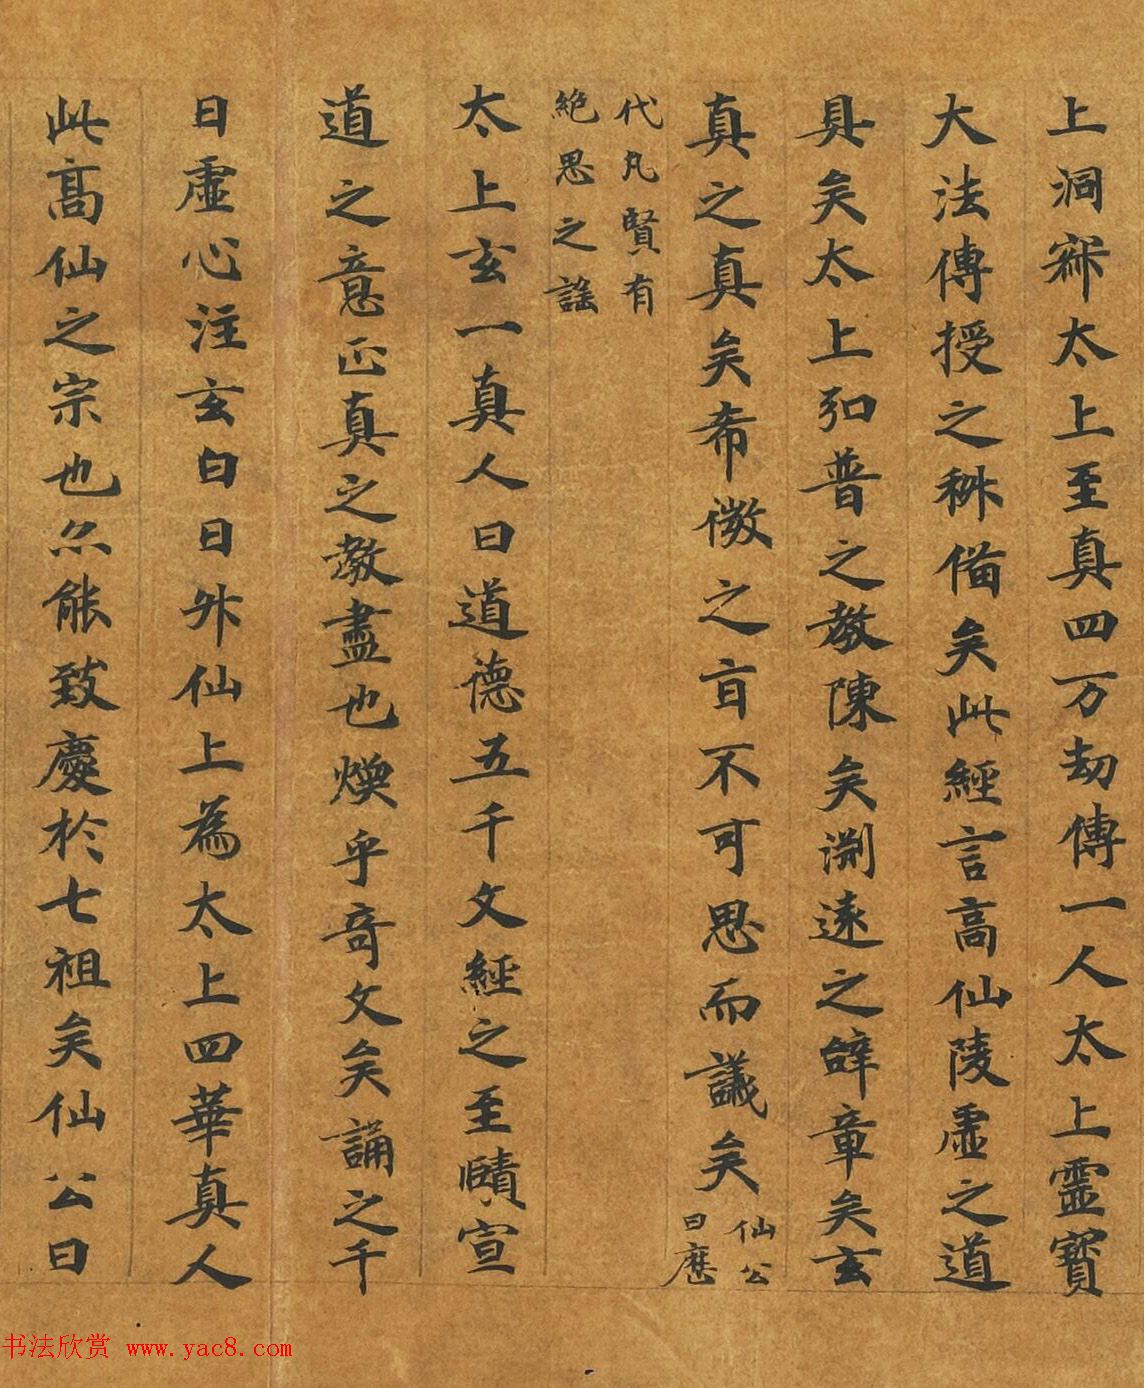 上洞𡧯太上至真四万劫傳一人太上靈寶
大法傳授之科備矣此經言高仙陵虛之道
具矣太上弘普之教陳矣淵遠之辭章矣玄
真之真矣希微之旨不可思而議矣仙公曰歷
代凡賢有絶思之謡
太上玄一真人曰道德五千文經之至賾宣
道之意正真之教盡也煥乎奇文矣誦之千
日虛心注玄白日升仙上為太上四華真人
此高仙之宗也亦能致慶於七祖矣仙公曰
书法欣赏 www.yac8.com